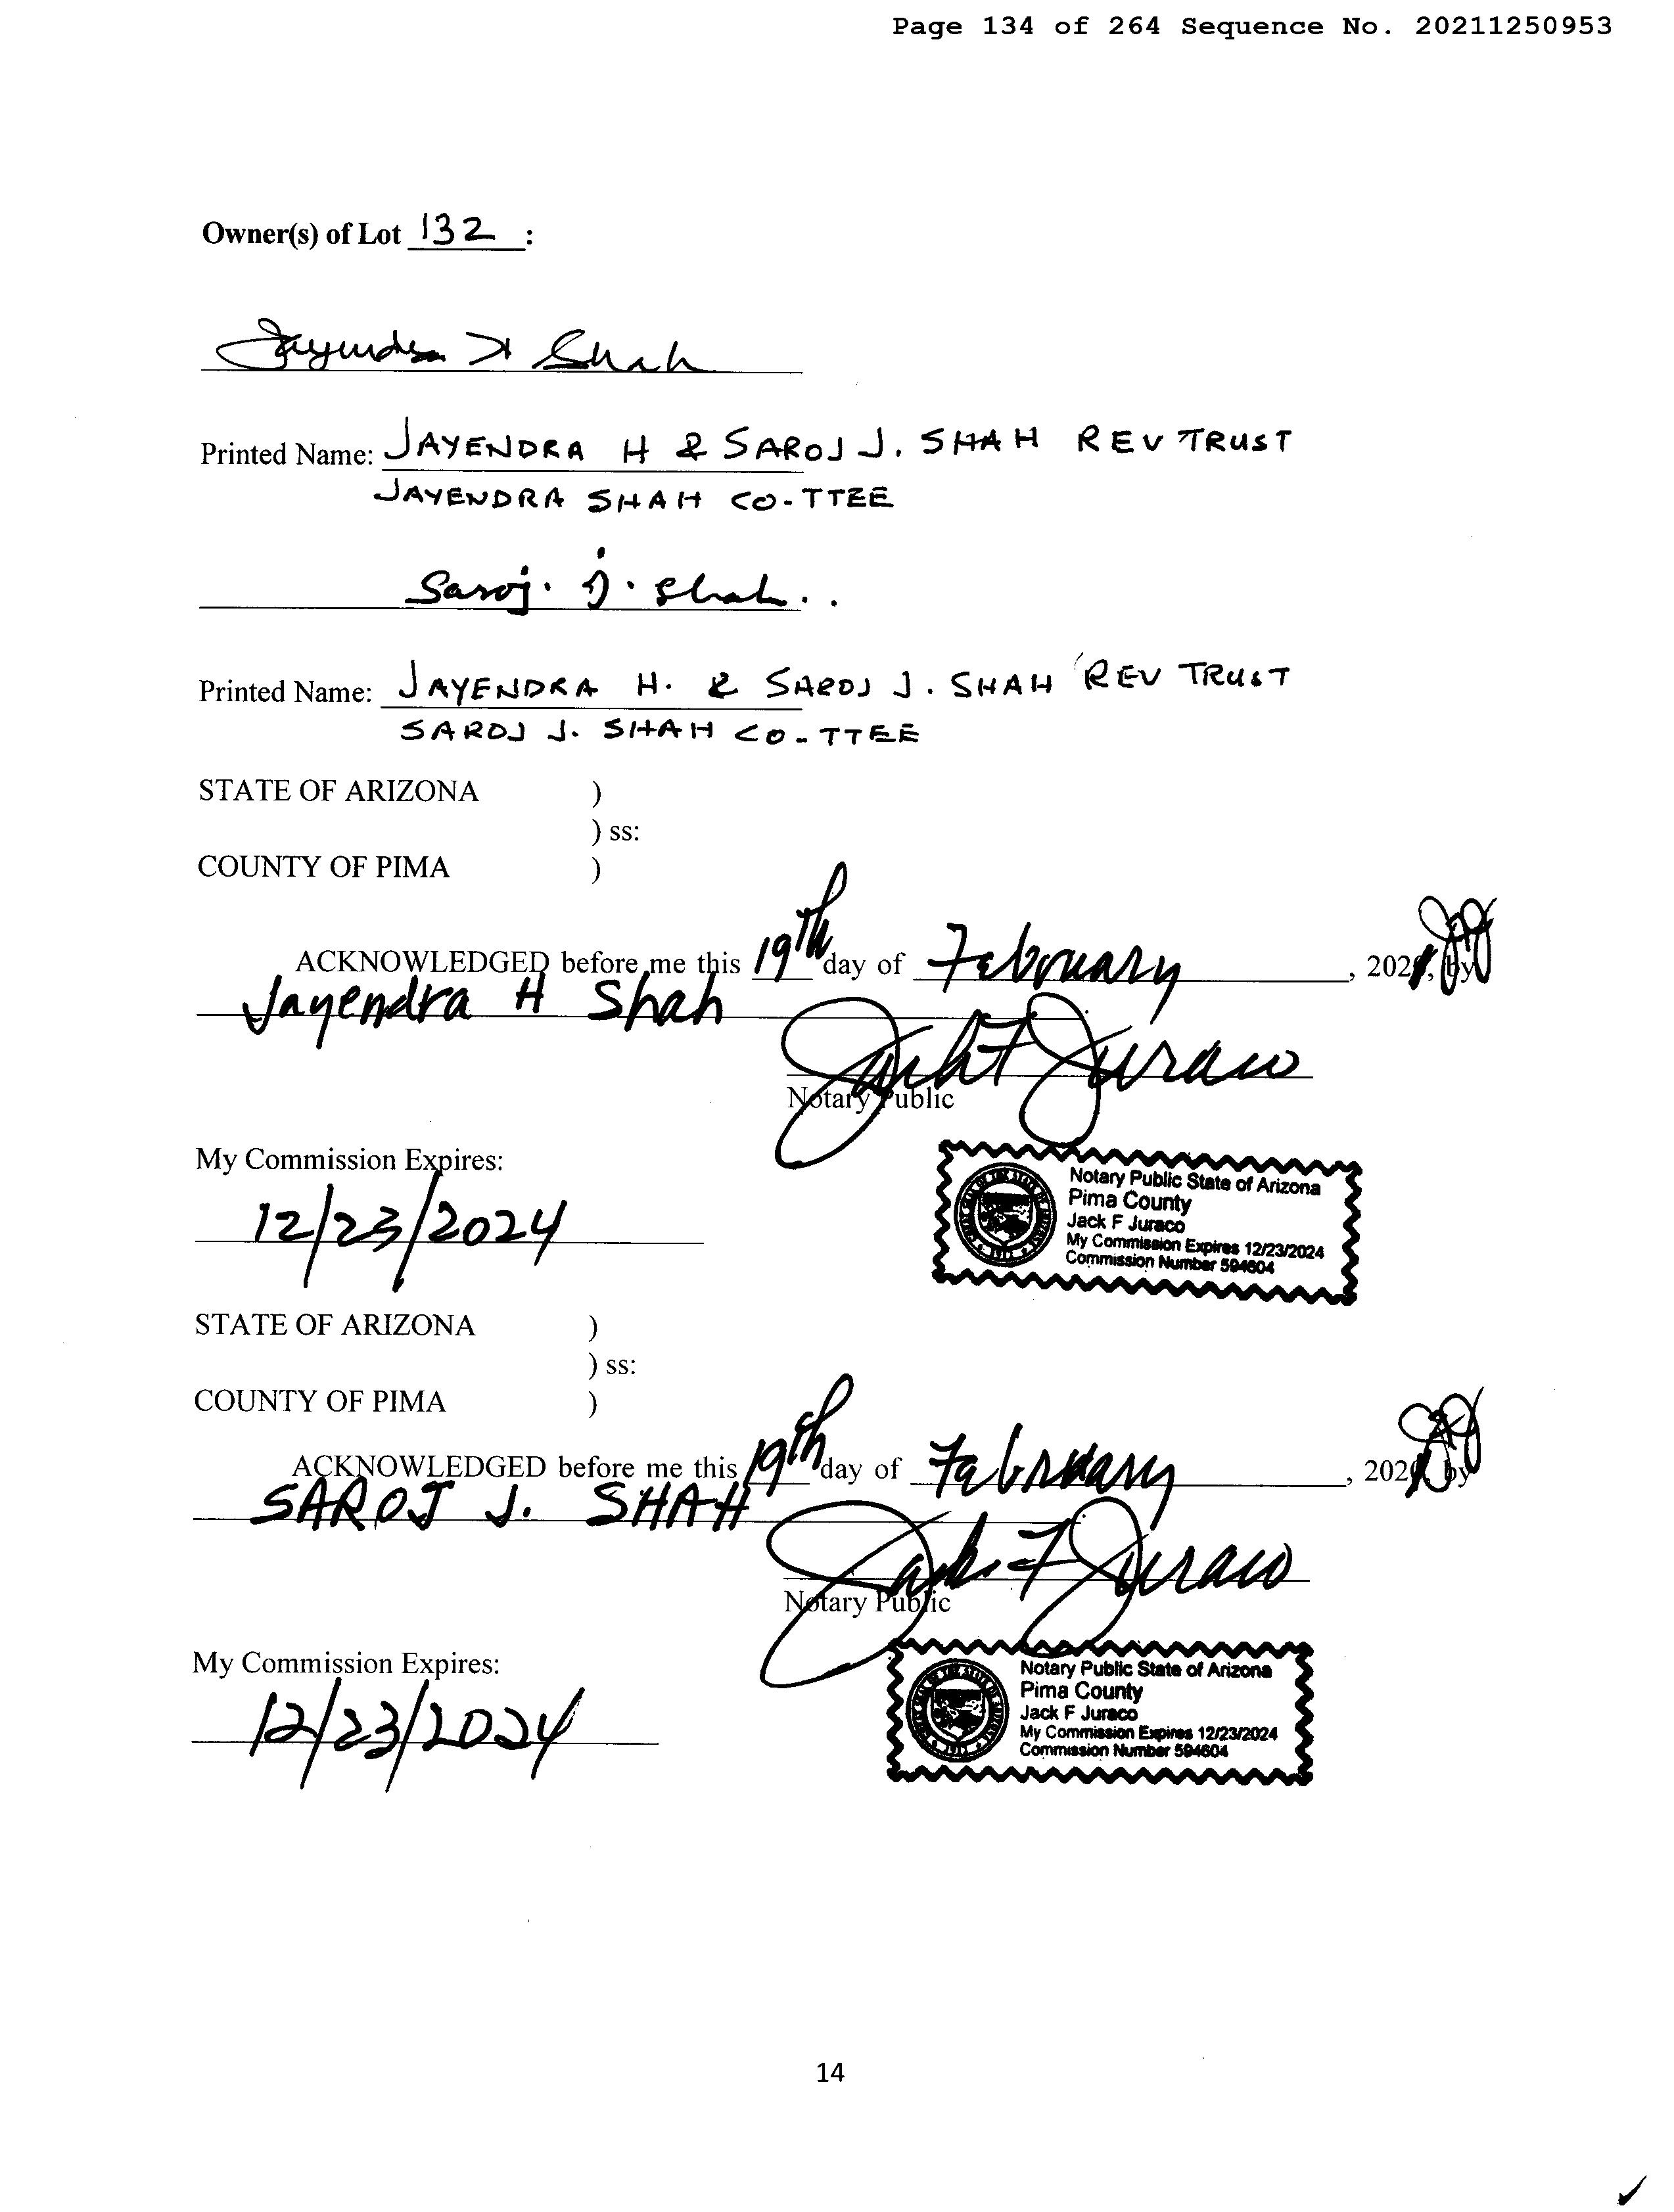 Page 134 of 264 Sequence No. 20211250953
Owner(s) of Lot 132 :
Jayendra H Shah
Printed Name: JAYENDRA H & SAROJ J. SHAH REV TRUST
JAYENDRA SHAH CO-TTEE
Saroj. J. Shah..
Printed Name: JAYENDRA H. & SAROJ J. SHAH REV TRUST
SAROJ J. SHAH CO-TTEE
STATE OF ARIZONA )
) ss:
COUNTY OF PIMA )
ACKNOWLEDGED before me this 19th day of February, 2021, by
Jayendra H Shah
Jack F Juraco
Notary Public
My Commission Expires:
12/23/2024
Notary Public State of Arizona
Pima County
Jack F Juraco
My Commission Expires 12/23/2024
Commission Number 594604
STATE OF ARIZONA )
) ss:
COUNTY OF PIMA )
ACKNOWLEDGED before me this 19th day of February, 202 by
SAROJ J. SHAH
Jack F Juraco
Notary Public
My Commission Expires:
12/23/2024
Notary Public State of Arizona
Pima County
Jack F Juraco
My Commission Expires 12/23/2024
Commission Number 594604
14